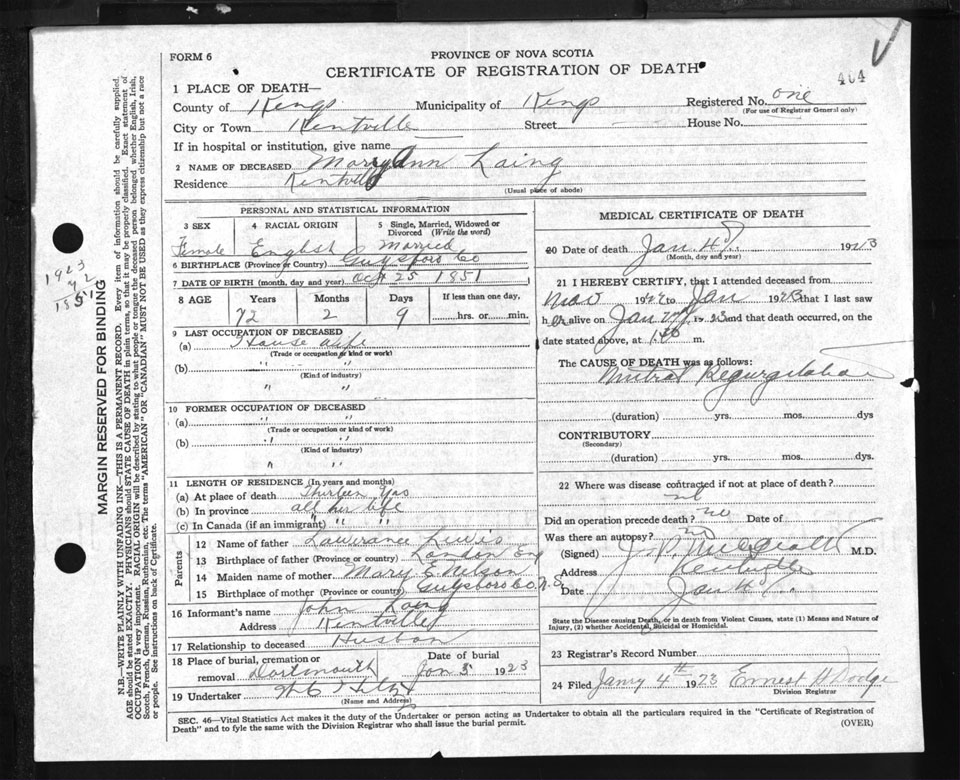 FORM 6
PROVINCE OF NOVA SCOTIA
CERTIFICATE OF REGISTRATION OF DEATH
404
1 PLACE OF DEATH—
County of Kings Municipality of Kings Registered No. one
(For use of Registrar General only)
City or Town Kentville Street House No.
If in hospital or institution, give name
2 NAME OF DECEASED Mary Ann Laing
Residence Kentville
(Usual place of abode)
PERSONAL AND STATISTICAL INFORMATION
3 SEX 4 RACIAL ORIGIN 5 Single, Married, Widowed or Divorced (Write the word)
Female English Married
6 BIRTHPLACE (Province or Country) Guysboro Co
7 DATE OF BIRTH (month, day and year) Oct 25 1851
8 AGE Years Months Days If less than one day,
72 2 9 hrs. or min.
9 LAST OCCUPATION OF DECEASED
(a) House wife
(Trade or occupation or kind or work)
(b) " "
(Kind of industry)
" "
10 FORMER OCCUPATION OF DECEASED
(a) " "
(Trade or occupation or kind of work)
(b) " "
(Kind of industry)
" "
11 LENGTH OF RESIDENCE (In years and months)
(a) At place of death Thirteen yrs
(b) In province all her life
(c) In Canada (if an immigrant) " " "
Parents
12 Name of father Lawrance Lewis
13 Birthplace of father (Province or country) London Eng
14 Maiden name of mother Mary E. Nelson
15 Birthplace of mother (Province or country) Guysboro Co. N.S.
16 Informant's name John Laing
Address Kentville
17 Relationship to deceased Husban
18 Place of burial, cremation or removal Dartmouth Date of burial Jan 5 1923
19 Undertaker
(Name and Address)
MEDICAL CERTIFICATE OF DEATH
20 Date of death Jan 4 1923
(Month, day and year)
21 I HEREBY CERTIFY, that I attended deceased from
Nov 1922 to Jan 1923 that I last saw
her alive on Jan 1923 and that death occurred, on
date stated above, at m.
The CAUSE OF DEATH was as follows:
Mitral Regurgitation
(duration) yrs. mos. dys
CONTRIBUTORY
(Secondary)
(duration) yrs. mos. dys.
22 Where was disease contracted if not at place of death?
Did an operation precede death? no Date of
Was there an autopsy? no
(Signed) M.D.
Address Kentville
Date Jan 4
State the Disease causing Death, or in death from Violent Causes, state (1) Means and Nature of Injury, (2) whether Accidental, Suicidal or Homicidal.
23 Registrar's Record Number
24 Filed Janry 4th 1923 Ernest H Dodge
Division Registrar
SEC. 46—Vital Statistics Act makes it the duty of the Undertaker or person acting as Undertaker to obtain all the particulars required in the "Certificate of Registration of
Death" and to fyle the same with the Division Registrar who shall issue the burial permit.
(OVER)
MARGIN RESERVED FOR BINDING
N.B.—WRITE PLAINLY WITH UNFADING INK—THIS IS A PERMANENT RECORD. Every item of information should be carefully supplied.
AGE should be stated EXACTLY. PHYSICIANS should STATE CAUSE OF DEATH in plain terms, so that it may be properly classified. Exact statement of
OCCUPATION is very important. RACIAL ORIGIN will be described by stating to what people or tongue the deceased person belonged whether English, Irish,
Scotch, French, German, Russian, Ruthenian, etc. The terms "AMERICAN" OR "CANADIAN" MUST NOT BE USED as they express citizenship but not a race
or people. See instructions on back of Certificate.
1923
72
1851